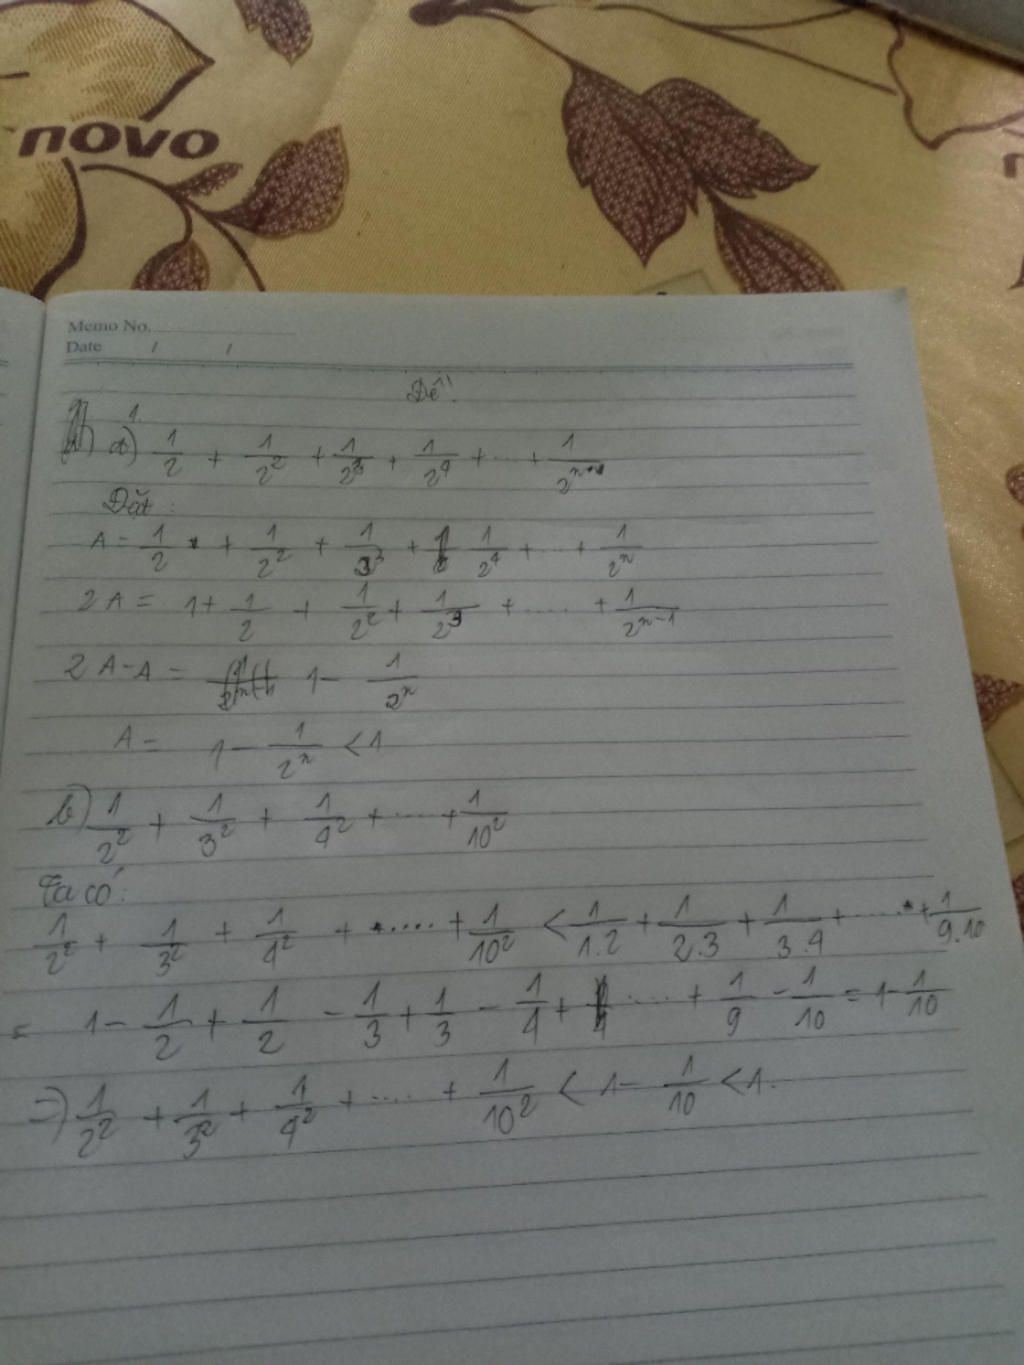 novo
Memo No.
Date / /
Đề 1
1.
a) 1/2 + 1/2² + 1/2³ + 1/2⁴ + ... + 1/2ⁿ
Đặt:
A = 1/2 + 1/2² + 1/3³ + 1/2⁴ + ... + 1/2ⁿ
2A = 1 + 1/2 + 1/2² + 1/2³ + ..... + 1/2ⁿ⁻¹
2A - A = 1 - 1/2ⁿ
A = 1 - 1/2ⁿ < 1
b) 1/2² + 1/3² + 1/4² + .... + 1/10²
Ta có:
1/2² + 1/3² + 1/4² + ..... + 1/10² < 1/1.2 + 1/2.3 + 1/3.4 + ..... + 1/9.10
= 1 - 1/2 + 1/2 - 1/3 + 1/3 - 1/4 + .... + 1/9 - 1/10 = 1 - 1/10
=> 1/2² + 1/3² + 1/4² + .... + 1/10² < 1 - 1/10 < 1.